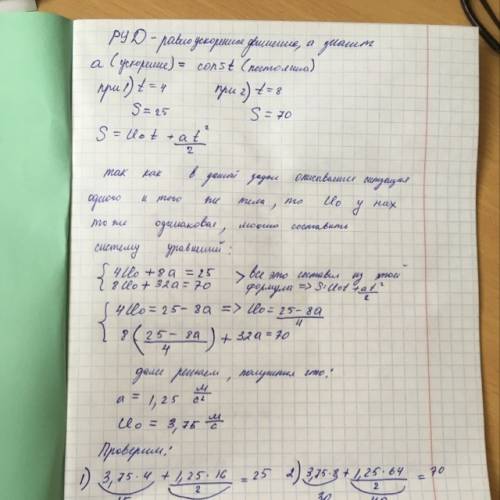 РУД - равноускоренное движение, а значит
a (ускорение) = const (постоянна)
при 1) t = 4 при 2) t = 8
S = 25 S = 70
S = U₀t + at²/2
так как в данной задаче описывается ситуация
одного и того же тела, то U₀ у них
тоже одинаковая, можно составить
систему уравнений:
{ 4U₀ + 8a = 25 > все это составил из этой
8U₀ + 32a = 70 формулы => S = U₀t + at²/2
{ 4U₀ = 25 - 8a => U₀ = (25 - 8a)/4
8((25 - 8a)/4) + 32a = 70
далее решаем, получится это:
a = 1,25 м/с²
U₀ = 3,75 м/с
Проверим:
1) 3,75·4 + 1,25·16/2 = 25 2) 3,75·8 + 1,25·64/2 = 70
15 30 40